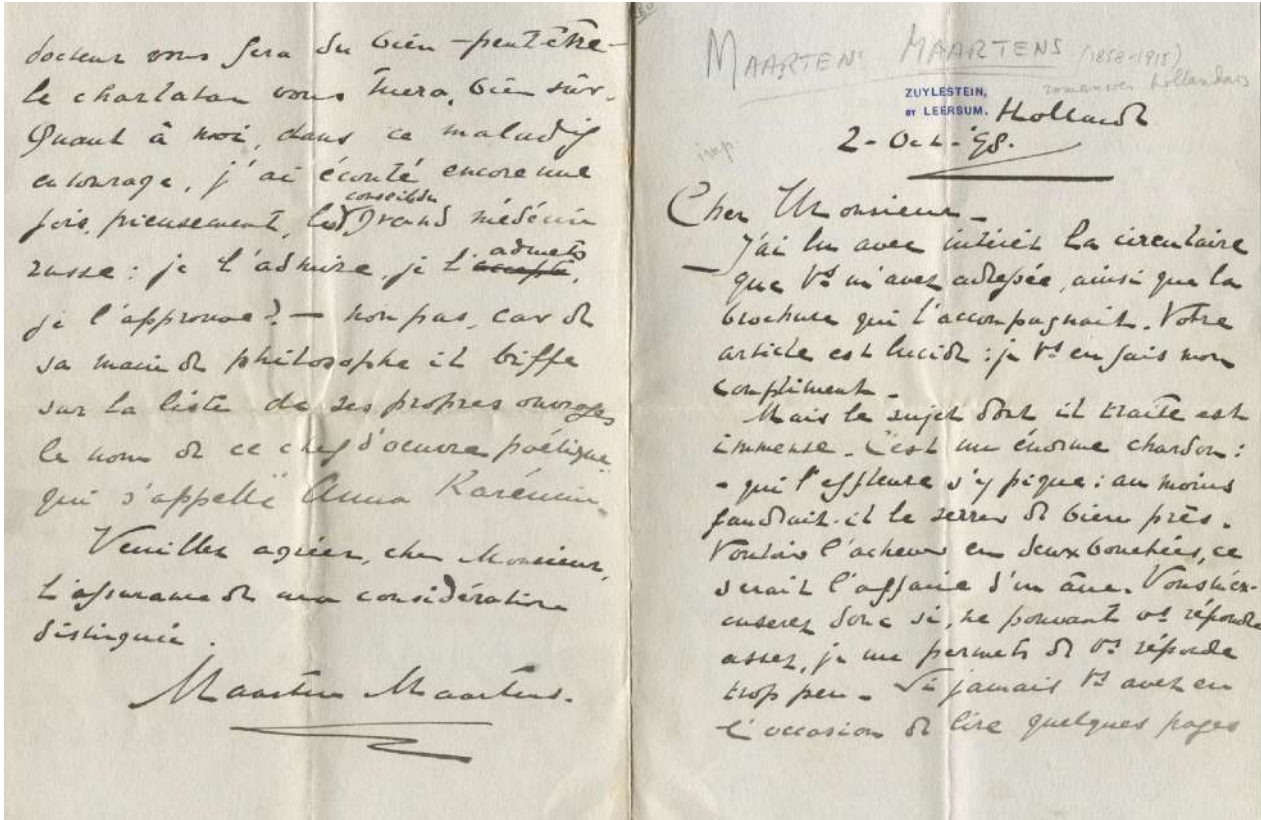 docteur vous fera du bien – peut être –
le charlatan vous tuera, bien sûr.
Quant à moi, dans ce maladif
entourage, j'ai écouté encore une
fois, pieusement, les conseils du grand médecin
russe : je l'admire, je l'accepte admets,
je l'approuve? – non pas, car de
sa main de philosophe il biffe
sur la liste de ses propres ouvrages
le nom de ce chef d'oeuvre poétique
qui s'appelle Anna Karénin.
Veuillez agréer, cher Monsieur,
l'assurance de ma considération
distinguée.
Maarten Maartens.
MAARTENS MAARTENS (1858-1915)
romancier hollandais
ZUYLESTEIN,
BY LEERSUM. Holland
imp
2 - Oct - '98.
Cher Monsieur –
J'ai lu avec intérêt la circulaire
que vs m'avez adressée, ainsi que la
brochure qui l'accompagnait. Votre
article est lucide : je vs en fais mon
compliment.
Mais le sujet dont il traite est
immense. C'est un énorme chardon :
– qui l'effleure s'y pique : au moins
faudrait-il le serrer de bien près.
Vouloir l'achever en deux bouchées, ce
serait l'affaire d'un âne. Vous m'ex-
cuserez donc si, ne pouvant vs répondre
assez, je me permets de vs répondre
trop peu – Si jamais vs avez eu
l'occasion de lire quelques pages